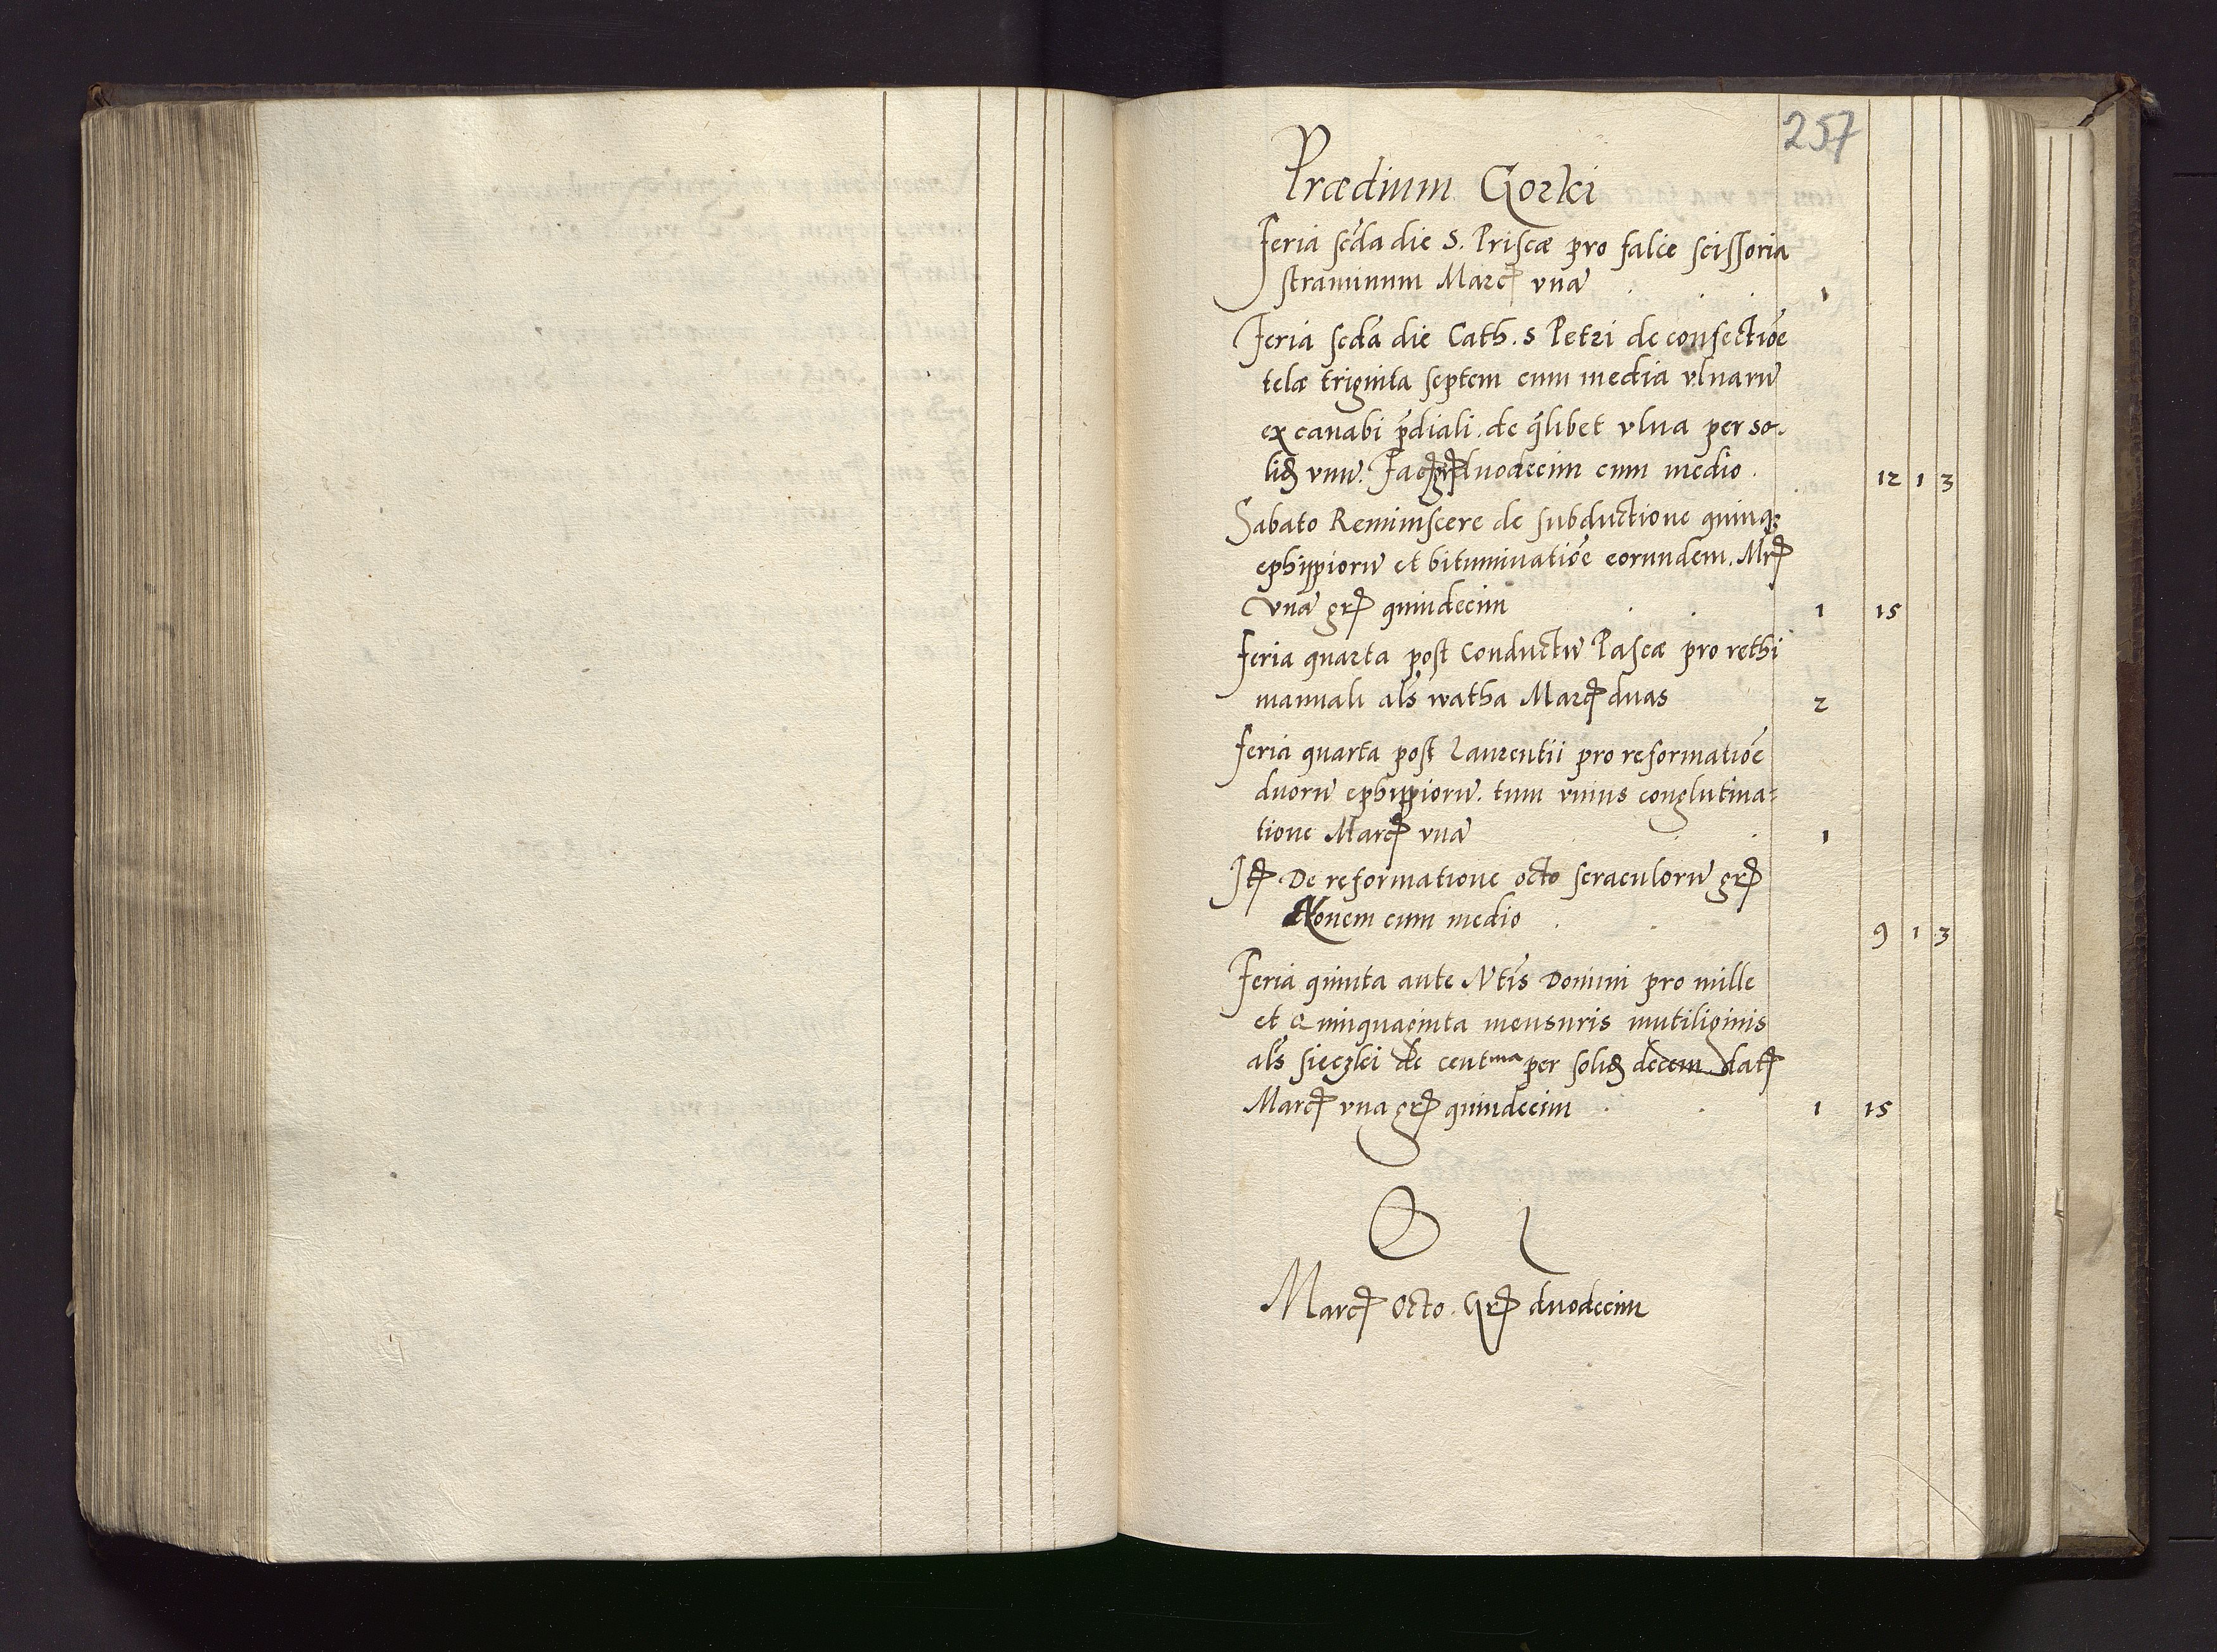 257
Prædium Gorki
Feria scd́a die S. Priscæ pro falce scissoria
straminum Marc unā 1
Feria scdá die Cath. S Petri de confectiōe
telæ triginta septem cum media vlnarū
ex canabi p̄diali. de q̄libet vlna per so-
lid vnū. Fac gr duodecim cum medio. 12 1 3
Sabato Reminiscere de subductione quinq;
ephippiorū et bituminatiōe eorundem. Mr
vnā gr quindecim 1 15
Feria quarta post Conductū Pascæ pro rethi
manuali als watha Marc duas 2
Feria quarta post Laurentii pro reformatiōe
duorū ephippiorū. tum unius conglutina=
tione Marc vnā 1
It De reformatione octo seraculorū gr
Nonem cum medio 9 1 3
Feria quinta ante Ntis Domini pro mille
et Quinquaginta mensuris mutiliginis
als sieczki de cent<sup>ma</sup> per solid decem dat
Marc vna gr quindecim 1 15
Marc Octo. Gr duodecim